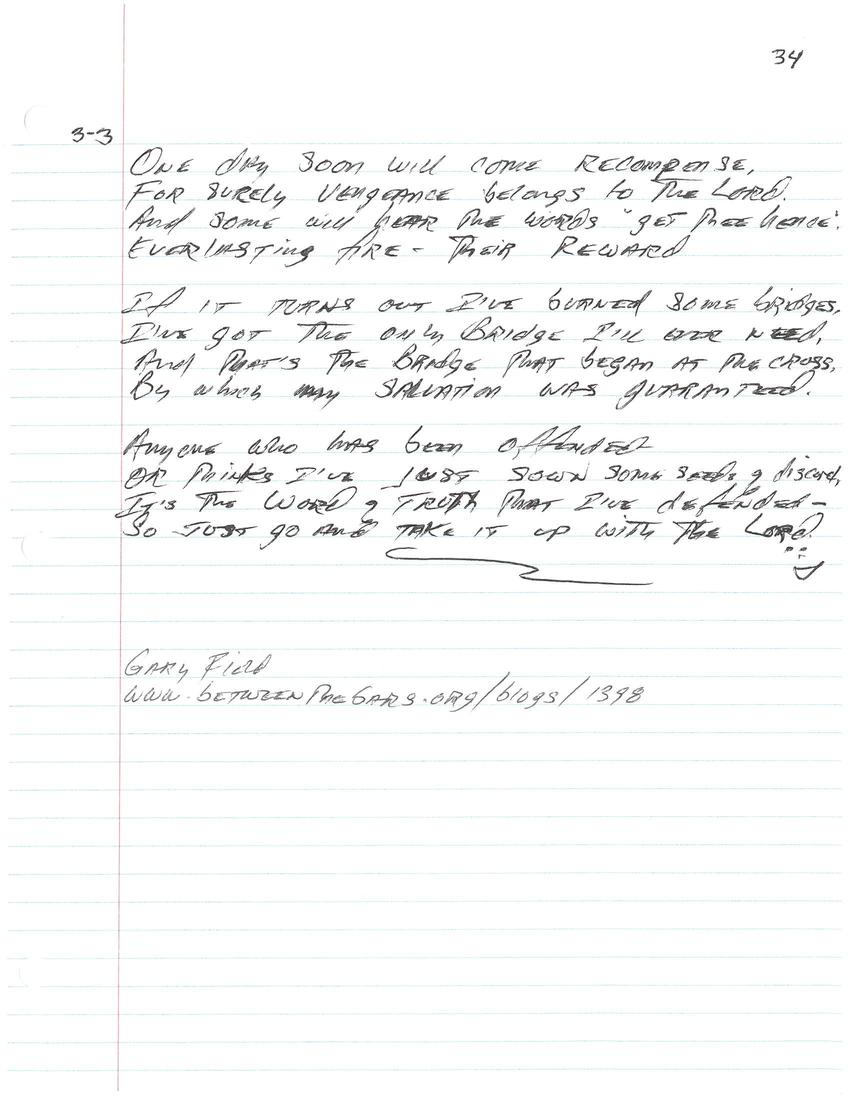 34
3-3
One day soon will come recompense,
For surely vengeance belongs to the Lord.
And some will hear the words "get thee hence".
Everlasting fire - their reward

If it turns out I've burned some bridges,
I've got the only Bridge I'll ever need,
And that's the Bridge that began at the cross,
By which my salvation was guaranteed.

Anyone who has been offended
Or thinks I've just sown some seeds of discord,
It's the Word of Truth that I've defended -
So just go and take it up with the Lord.

Gary Field
www.betweenthebars.org/blogs/1398